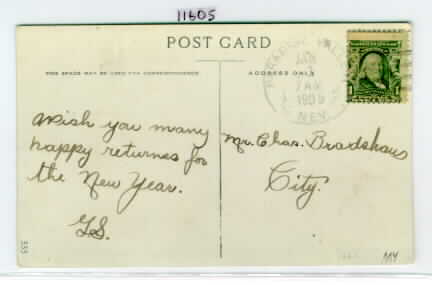 11605
POST CARD
THIS SPACE MAY BE USED FOR CORRESPONDENCE
ADDRESS ONLY
JAN
1
7 AM
1909
NEV
Wish you many
happy returnes for
the New Year.
G.S.
Mr. Chas. Bradshaus
City.
555
MY